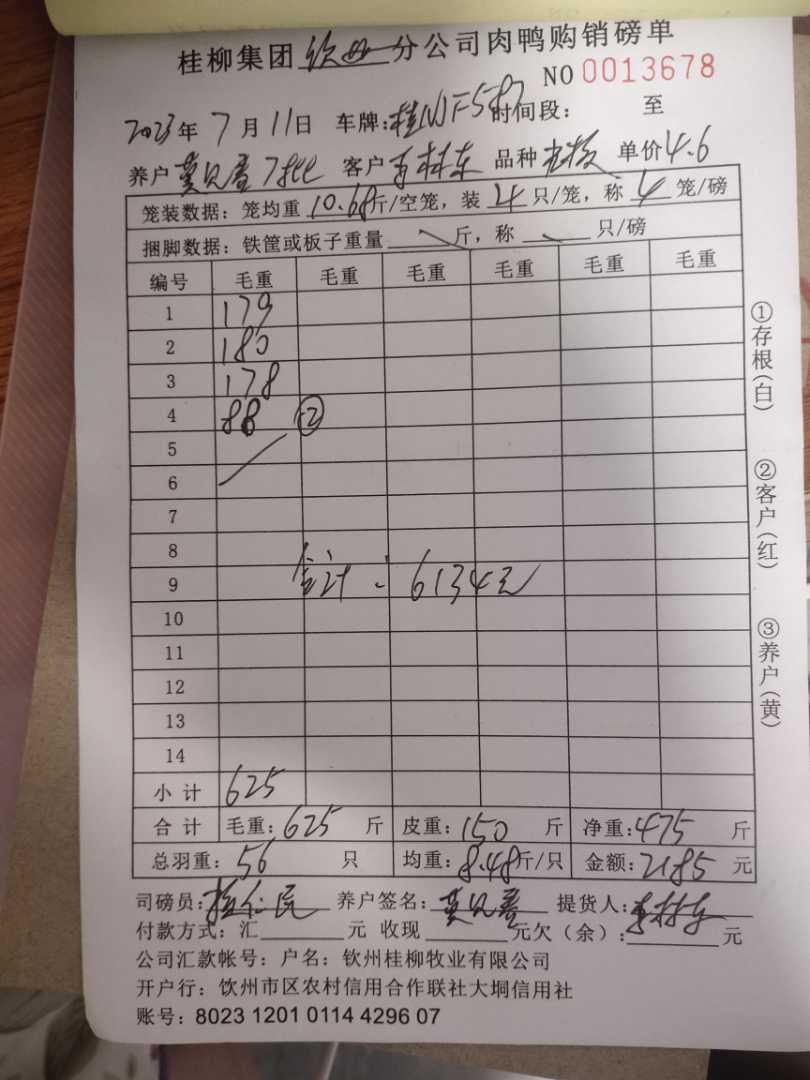 桂柳集团 钦州 分公司肉鸭购销磅单
NO 0013678
2023年 7月 11日 车牌: 时间段: 至
养户 客户 李林东 品种 单价4.6
笼装数据: 笼均重 10.68斤/空笼, 装 4 只/笼, 称 4 笼/磅
捆脚数据: 铁筐或板子重量 斤, 称 只/磅
编号 毛重 毛重 毛重 毛重 毛重 毛重
1 179
2 180
3 178
4 88 ②
5
6
7
8
9 合计: 6134元
10
11
12
13
14
小计 625
合计 毛重: 625 斤 皮重: 150 斤 净重: 475 斤
总羽重: 56 只 均重: 8.48斤/只 金额: 2185 元
司磅员: 养户签名: 提货人: 李林东
付款方式: 汇 元 收现 元欠(余): 元
公司汇款帐号: 户名: 钦州桂柳牧业有限公司
开户行: 饮州市区农村信用合作联社大垌信用社
账号: 8023 1201 0114 4296 07
①存根(白)
②客户(红)
③养户(黄)